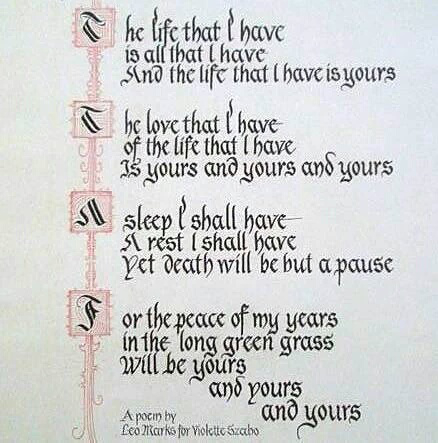 The life that I have
is all that I have
And the life that I have is yours
The love that I have
of the life that I have
Is yours and yours and yours
A sleep I shall have
A rest I shall have
Yet death will be but a pause
For the peace of my years
in the long green grass
Will be yours
and yours
and yours
A poem by
Leo Marks for Violette Szabo